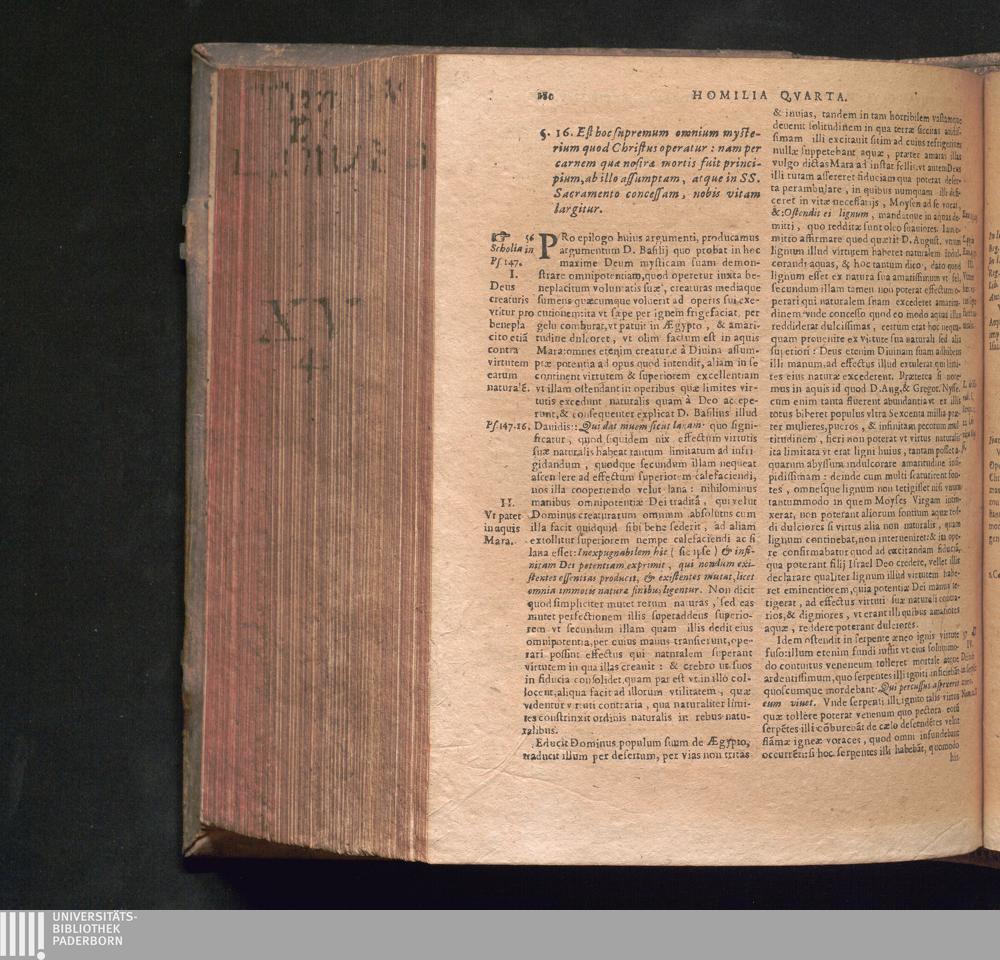 280
HOMILIA QVARTA.
§. 16. Est hoc supremum omnium myste-
rium quod Christus operatur: nam per
carnem quæ nostræ mortis fuit princi-
pium, ab illo assumptam, atque in SS.
Sacramento concessam, nobis vitam
largitur.
56
Scholia in
Ps. 147.
I.
Deus
creaturis
vtitur pro
benepla
cito etiã
contra
virtutem
earum
naturalẽ.
Ps. 147. 16.
II.
Vt patet
in aquis
Mara.
PRo epilogo huius argumenti, producamus
argumentum D. Basilij quo probat in hec
maxime Deum mysticam suam demon-
strare omnipotentiam, quod operetur iuxta be-
neplacitum voluntatis suæ, creaturas mediaque
sumens quæcumque voluerit ad operis sui exe-
cutionem: ita vt sæpe per ignem frigefaciat, per
gelu comburat, vt patuit in Ægypto, & amari-
tudine dulcoret, vt olim factum est in aquis
Mara: omnes etenim creaturæ à Diuina assum-
ptæ potentia ad opus quod intendit, aliam in se
continent virtutem & superiorem excellentiam
vt illam ostendant in operibus quæ limites vir-
tutis excedunt naturalis quam à Deo acepe-
runt, & consequenter explicat D. Basilius illud
Dauidis: Qui dat niuem sicut lanam. quo signi-
ficatur, quod siquidem nix effectum virtutis
suæ naturalis habeat tantum limitatum ad infri
gidandum, quodque secundum illam nequeat
ascendere ad effectum superiorem calefaciendi,
nos illa cooperiendo velut lana: nihilominus
manibus omnipotentiæ Dei tradita, qui velut
Dominus creaturarum omnium absolutus cum
illa facit quidquid sibi bene sederit, ad aliam
extollitur superiorem nempe calefaciendi ac si
lana esset: Inexpugnabilem hic (sic ipse) & infi-
nitam Dei potentiam exprimit, qui nondum exi-
stentes essentias producit, & existentes mutat, licet
omnia immotis naturæ finibus ligentur. Non dicit
quod simpliciter mutet rerum naturas, sed eas
mutet perfectionem illis superaddens superio-
rem vt secundum illam quam illis dedit eius
omnipotentia, per cuius manus transierunt, ope-
rari possint effectus qui naturalem superant
virtutem in qua illas creauit: & crebro vt suos
in fiducia consolidet, quam par est vt in illo col-
locent, aliqua facit ad illorum vtilitatem, quæ
videntur virtuti contraria, qua naturaliter limi-
tes constrinxit ordinis naturalis in rebus natu-
ralibus.
Educit Dominus populum suum de Ægypto,
traducit illum per desertum, per vias non tritas
& inuias, tandem in tam horribilem vastamque
deuenit solitudinem in qua terræ siccitas
simam illi excitauit sitim ad cuius refrigerium
nullæ suppetebant aquæ, præter amaras illas
vulgo dictas Mara ad instar fellis: vt autem Deus
illi tutam assereret fiduciam qua poterat deser-
ta perambulare, in quibus numquam illi defi-
ceret in vitæ necessarijs, Moysen ad se vocat,
&: Ostendit ei lignum, mandatque in aquas de-
mitti, quo redditæ sunt oleo suauiores. Iam e-
mitto affirmare quod quærit D. August. vtrum
lignum illud virtutem haberet naturalem indul-
corandi aquas, & hoc tantum dico, dato quod
lignum esset ex natura sua amarissimum vt fel,
secundum illam tamen non poterat effectum o-
perari qui naturalem suam excederet amaritu-
dinem vnde concesso quod eo modo aquas illas
reddiderat dulcissimas, certum erat hoc nequa-
quam prouenire ex virtute sua naturali sed alia
superiori: Deus etenim Diuinam suam adhibens
illi manum, ad effectus illud extulerat qui limi-
tes eius naturæ excederent. Præterea si note-
mus in aquis id quod D. Aug. & Gregor. Nysse.
cum enim tanta fluerent abundantia vt ex illis
totus biberet populus vltra Sexcenta millia præ-
ter mulieres, pueros, & infinitam pecorum mul
titudinem, fieri non poterat vt virtus naturalis
ita limitata vt erat ligni huius, tantam posset a-
quarum abyssum indulcorare amaritudine insi-
pidissimam: deinde cum multi scaturirent fon-
tes, omnesque lignum non tetigisset nisi vnum
tantummodo in quem Moyses Virgam inim-
xerat, non poterant aliorum fontium aquæ red-
di dulciores si virtus alia non naturalis, quam
lignum continebat, non interueniret: & ita ope-
re confirmabatur quod ad excitandam fiduciã,
qua poterant filij Israel Deo credere, vellet illis
declarare qualiter lignum illud virtutem habe-
ret eminentiorem, quia potentiæ Dei manus te-
tigerat, ad effectus virtuti suæ naturali contra-
rios, & digniores, vt erant illi quibus amariores
aquæ, reddere poterant dulciores.
Idem ostendit in serpente æneo ignis virtute
fuso: illum etenim fundi iussit vt eius solummo-
do contuitus veneneum tolleret mortale atque
ardentissimum, quo serpentes illi igniti inficiebãt
quoscumque mordebant: Qui percussus aspexerit
eum viuet. Vnde serpenti illi ignito talis virtus
quæ tollere poterat venenum quo pectora eorũ
serpẽtes illi cõburebãt de cælo descendẽtes velut
flãmæ igneæ voraces, quod omni infundebant
occurrẽti: si hoc sergentes illi habebãt, quomodo
hic
XV
4
UNIVERSITÄTS-
BIBLIOTHEK
PADERBORN